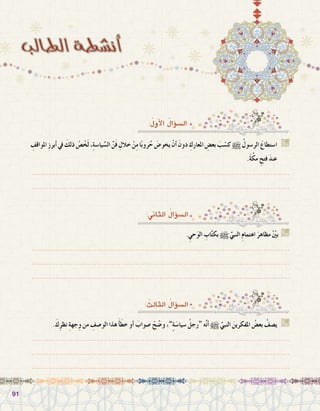 أنشطة الطالب
• السؤال الأول:
استطاعَ الرسولُ ﷺ كَسْبَ بعضِ المعاركِ دونَ أنْ يخوضَ حُروبًا مِنْ خلالِ فَنِّ السِّياسة، لَخِّصْ ذلك في أبرزِ المواقفِ
عندَ فتحِ مكَّةَ.
• السؤال الثاني:
بَيِّنْ مظاهرَ اهتمامِ النبيِّ ﷺ بكُتَّابِ الوَحي.
• السؤال الثالث:
يصفُ بعضُ المفكرينَ النبيَّ ﷺ أنَّه "رجلُ سياسةٍ"، وضِّحْ صوابَ أو خطأَ هذا الوصفِ من وجهةِ نظرِكَ.
91